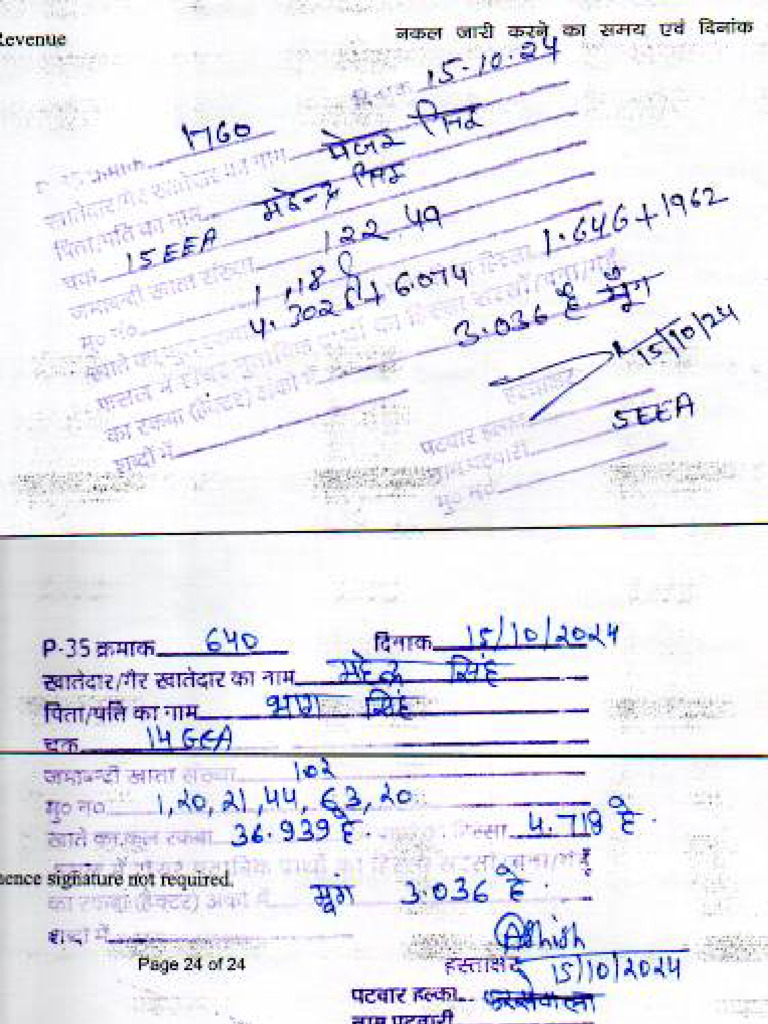 Revenue
नकल जारी करने का समय एवं दिनांक
दिनांक 15.10.24
P-35 क्रमाक 1760
खातेदार/गैर खातेदार का नाम मेजर सिंह
पिता/पति का नाम महेन्द्र सिंह
चक 15EEA
जमाबन्दी खाता संख्या 122 49
मु० नं० 1,18
खाते का कुल 4.302 + 6.074 हिस्सा 1.646+1962
फसल में का हिस्सा सरसों/चना/गेहूँ
का रकबा (हैक्टर) अंको में 3.036 है मूँग
शब्दों में
हस्ताक्षर 15/10/24
पटवार हल्का 5EEA
नाम पटवारी
मु० नं०
P-35 क्रमाक 640 दिनाक 15/10/2024
खातेदार/गैर खातेदार का नाम महेन्द्र सिंह
पिता/पति का नाम भाग सिंह
चक 14GEA
जमाबन्दी खाता संख्या 102
मु० न० 1,20,21,44,63,20
खाते का कुल रकबा 36.939 है. हिस्सा 4.718 है.
फसल में का हिस्सा सरसों/चना/गेहूँ
hence signature not required.
का रकबा (हैक्टर) अंको में मूग 3.036 है.
शब्दों में
Ashish
Page 24 of 24 हस्ताक्षर 15/10/2024
पटवार हल्का
नाम पटवारी